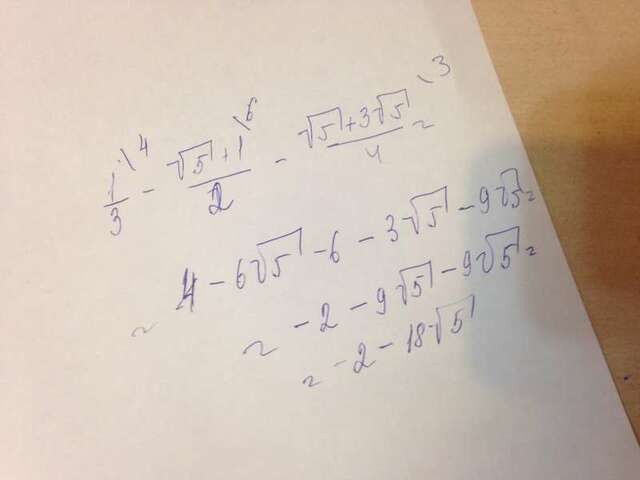 1/3 \4 - (√5+1)/2 \6 - (√5+3√5)/4 \3 =
= 4 - 6√5 - 6 - 3√5 - 9√5 =
= -2 - 9√5 - 9√5 =
= -2 - 18√5